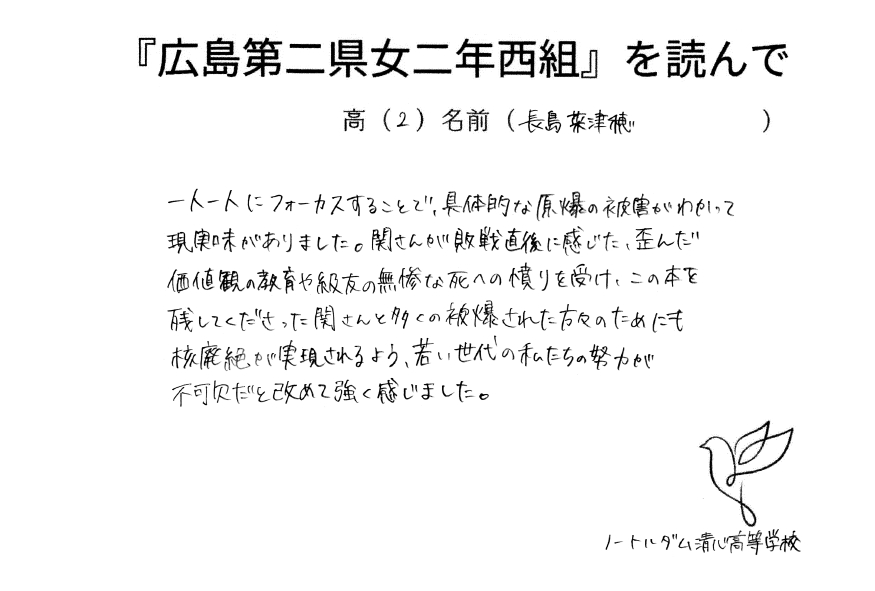 『広島第二県女二年西組』を読んで
高（2）名前（長島菜津穂）
一人一人にフォーカスすることで、具体的な原爆の被害がわかって
現実味がありました。関さんが敗戦直後に感じた、歪んだ
価値観の教育や級友の無惨な死への憤りを受け、この本を
残してくださった関さんと多くの被爆された方々のためにも
核廃絶が実現されるよう、若い世代の私たちの努力が
不可欠だと改めて強く感じました。
ノートルダム清心高等学校